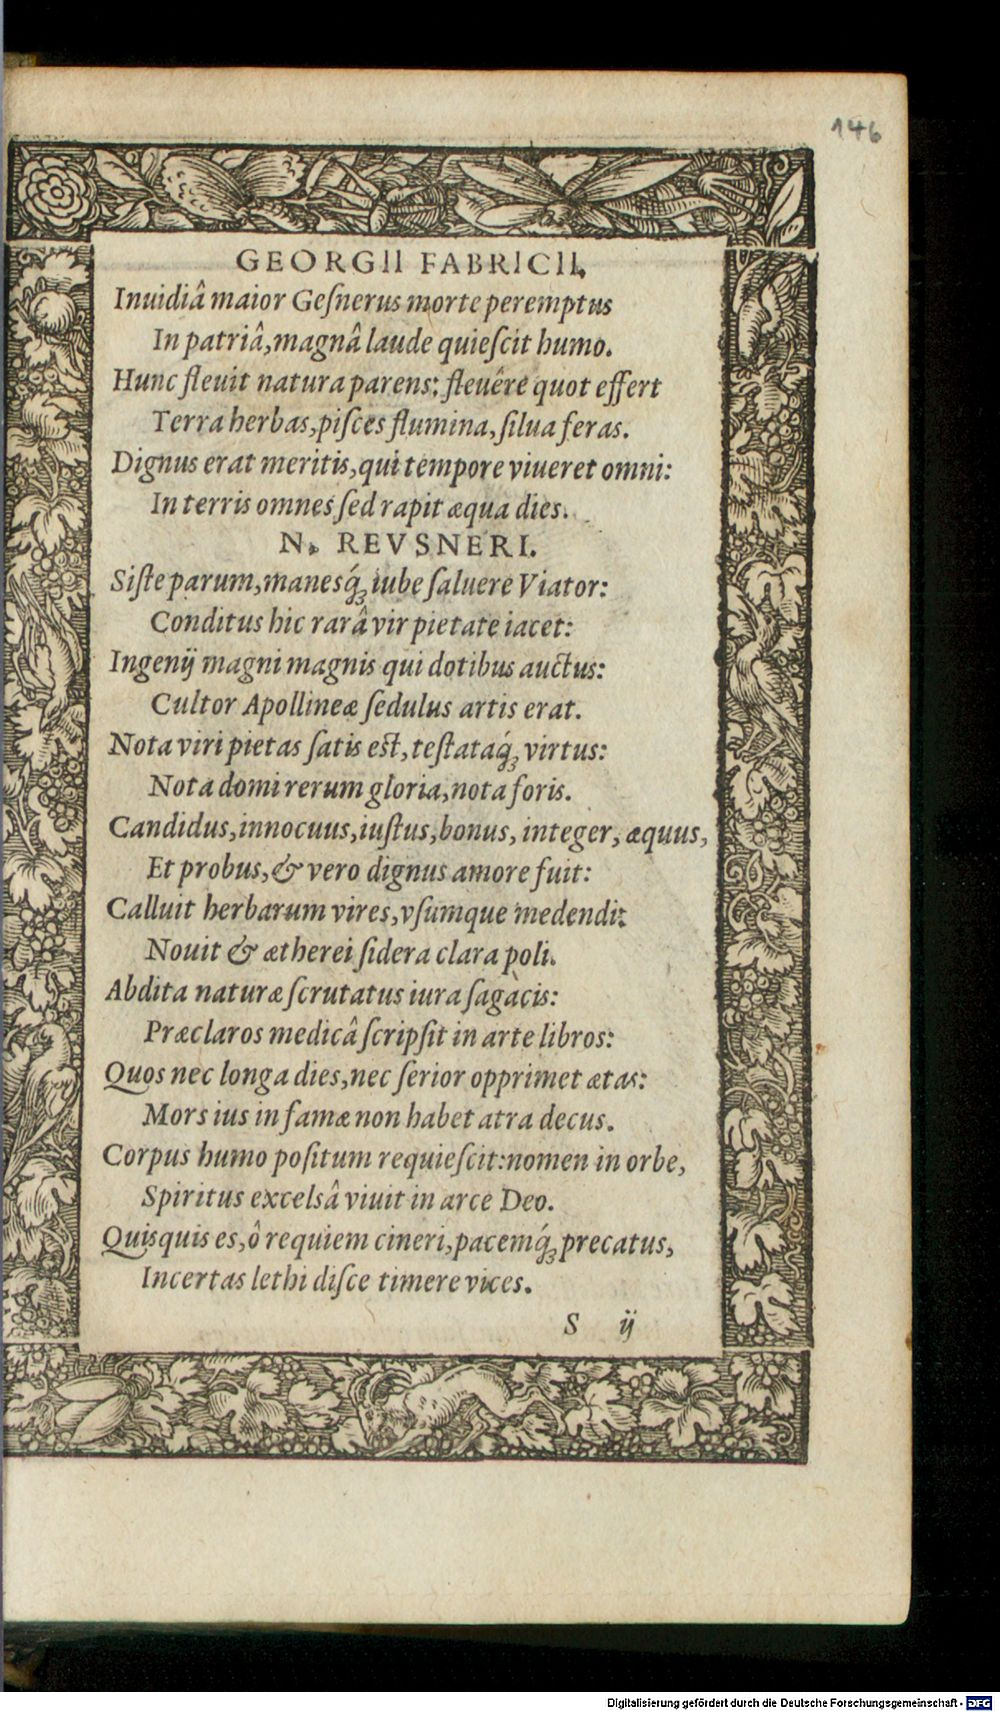 146
GEORGII FABRICII.
Inuidiâ maior Geſnerus morte peremptus
In patriâ, magnâ laude quieſcit humo.
Hunc fleuit natura parens: fleuêre quot effert
Terra herbas, piſces flumina, ſilua feras.
Dignus erat meritis, qui tempore viueret omni:
In terris omnes ſed rapit æqua dies.
N. REVSNERI.
Siſte parum, manesq́; iube ſaluere Viator:
Conditus hic rarâ vir pietate iacet:
Ingenij magni magnis qui dotibus auctus:
Cultor Apollineæ ſedulus artis erat.
Nota viri pietas ſatis eſt, teſtataq́; virtus:
Nota domi rerum gloria, nota foris.
Candidus, innocuus, iuſtus, bonus, integer, æquus,
Et probus, & vero dignus amore fuit:
Calluit herbarum vires, vſumque medendi:
Nouit & ætherei ſidera clara poli.
Abdita naturæ ſcrutatus iura ſagacis:
Præclaros medicâ ſcripſit in arte libros:
Quos nec longa dies, nec ſerior opprimet ætas:
Mors ius in famæ non habet atra decus.
Corpus humo poſitum requieſcit: nomen in orbe,
Spiritus excelsâ viuit in arce Deo.
Quisquis es, ô requiem cineri, pacemq́; precatus,
Incertas lethi diſce timere vices.
S ij
Digitalisierung gefördert durch die Deutsche Forschungsgemeinschaft - DFG